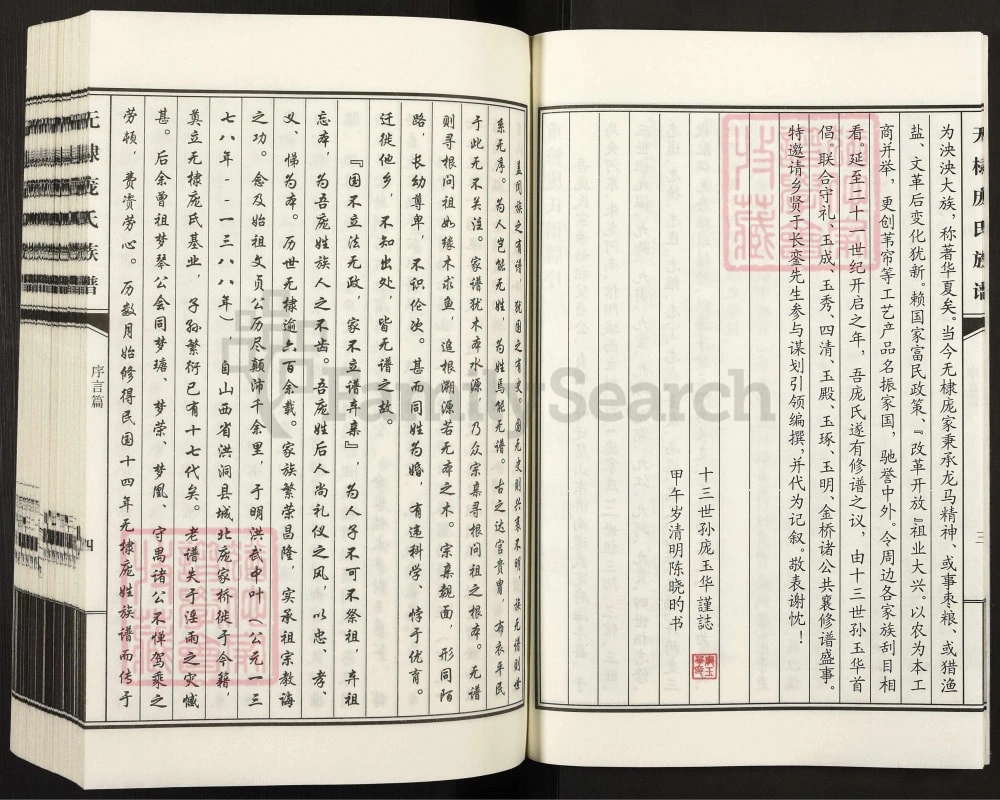 无棣庞氏族谱
三
为泱泱大族，称著华夏矣。当今无棣庞家秉承龙马精神、或事枣粮、或猎渔
盐、文革后变化犹新。赖国家富民政策、『改革开放』祖业大兴。以农为本工
商并举，更创苇帘等工艺产品名振家国，驰誉中外。令周边各家族刮目相
看。延至二十一世纪开启之年，吾庞氏遂有修谱之议，由十三世孙玉华首
倡。联合守礼、玉成、玉秀、四清、玉殿、玉琢、玉明、金桥诸公共襄修谱盛事。
特邀请乡贤于长銮先生参与谋划引领编撰，并代为记叙。敬表谢忱！
十三世孙庞玉华謹誌
甲午岁清明陈晓旳书
盖闻族之有谱，犹国之有史。国无史则兴衰不明，族无谱则世
系无序。为人岂能无姓，为姓焉能无谱。古之达官贵胄，布衣平民
于此无不关注。家谱犹木本水源，乃众宗亲寻根问祖之根本。无谱
则寻根问祖如缘木求鱼，追根溯源若无本之木。宗亲覿面，形同陌
路，长幼尊卑，不识伦次。甚而同姓为婚，有违科学、悖于优育。
迁徙他乡，不知出处，皆无谱之故。
『国不立法无政，家不立谱弃亲』，为人子不可不祭祖，弃祖
忘本，为吾庞姓族人之不齿。吾庞姓后人尚礼仪之风，以忠、孝、
义、悌为本。历世无棣逾六百余载。家族繁荣昌隆，实承祖宗教诲
之功。念及始祖文贞公历尽颠沛千余里，于明洪武中叶（公元一三
七八年--一三八八年），自山西省洪洞县城北庞家桥徙于今籍，
奠立无棣庞氏基业，子孙繁衍已有十七代矣。老谱失于淫雨之灾憾
甚。后余曾祖梦琴公会同梦瑭、梦荣、梦凰、守禺诸公不惮驾乘之
劳顿，费赀劳心。历数月始修得民国十四年无棣庞姓族谱而传于
无棣庞氏族谱
序言篇
四
FamilySearch